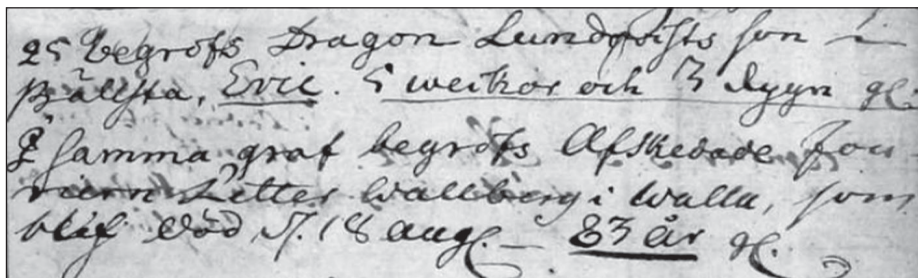 25 begrofs Dragon Lundqvists son i
Pällsta, Eric. 5 weckor och 3 dygn gl.
I samma graf begrofs Afskedade Fou
rieren Petter Wallberg i Walla, som
blef död d. 18 aug. – 83 år gl.